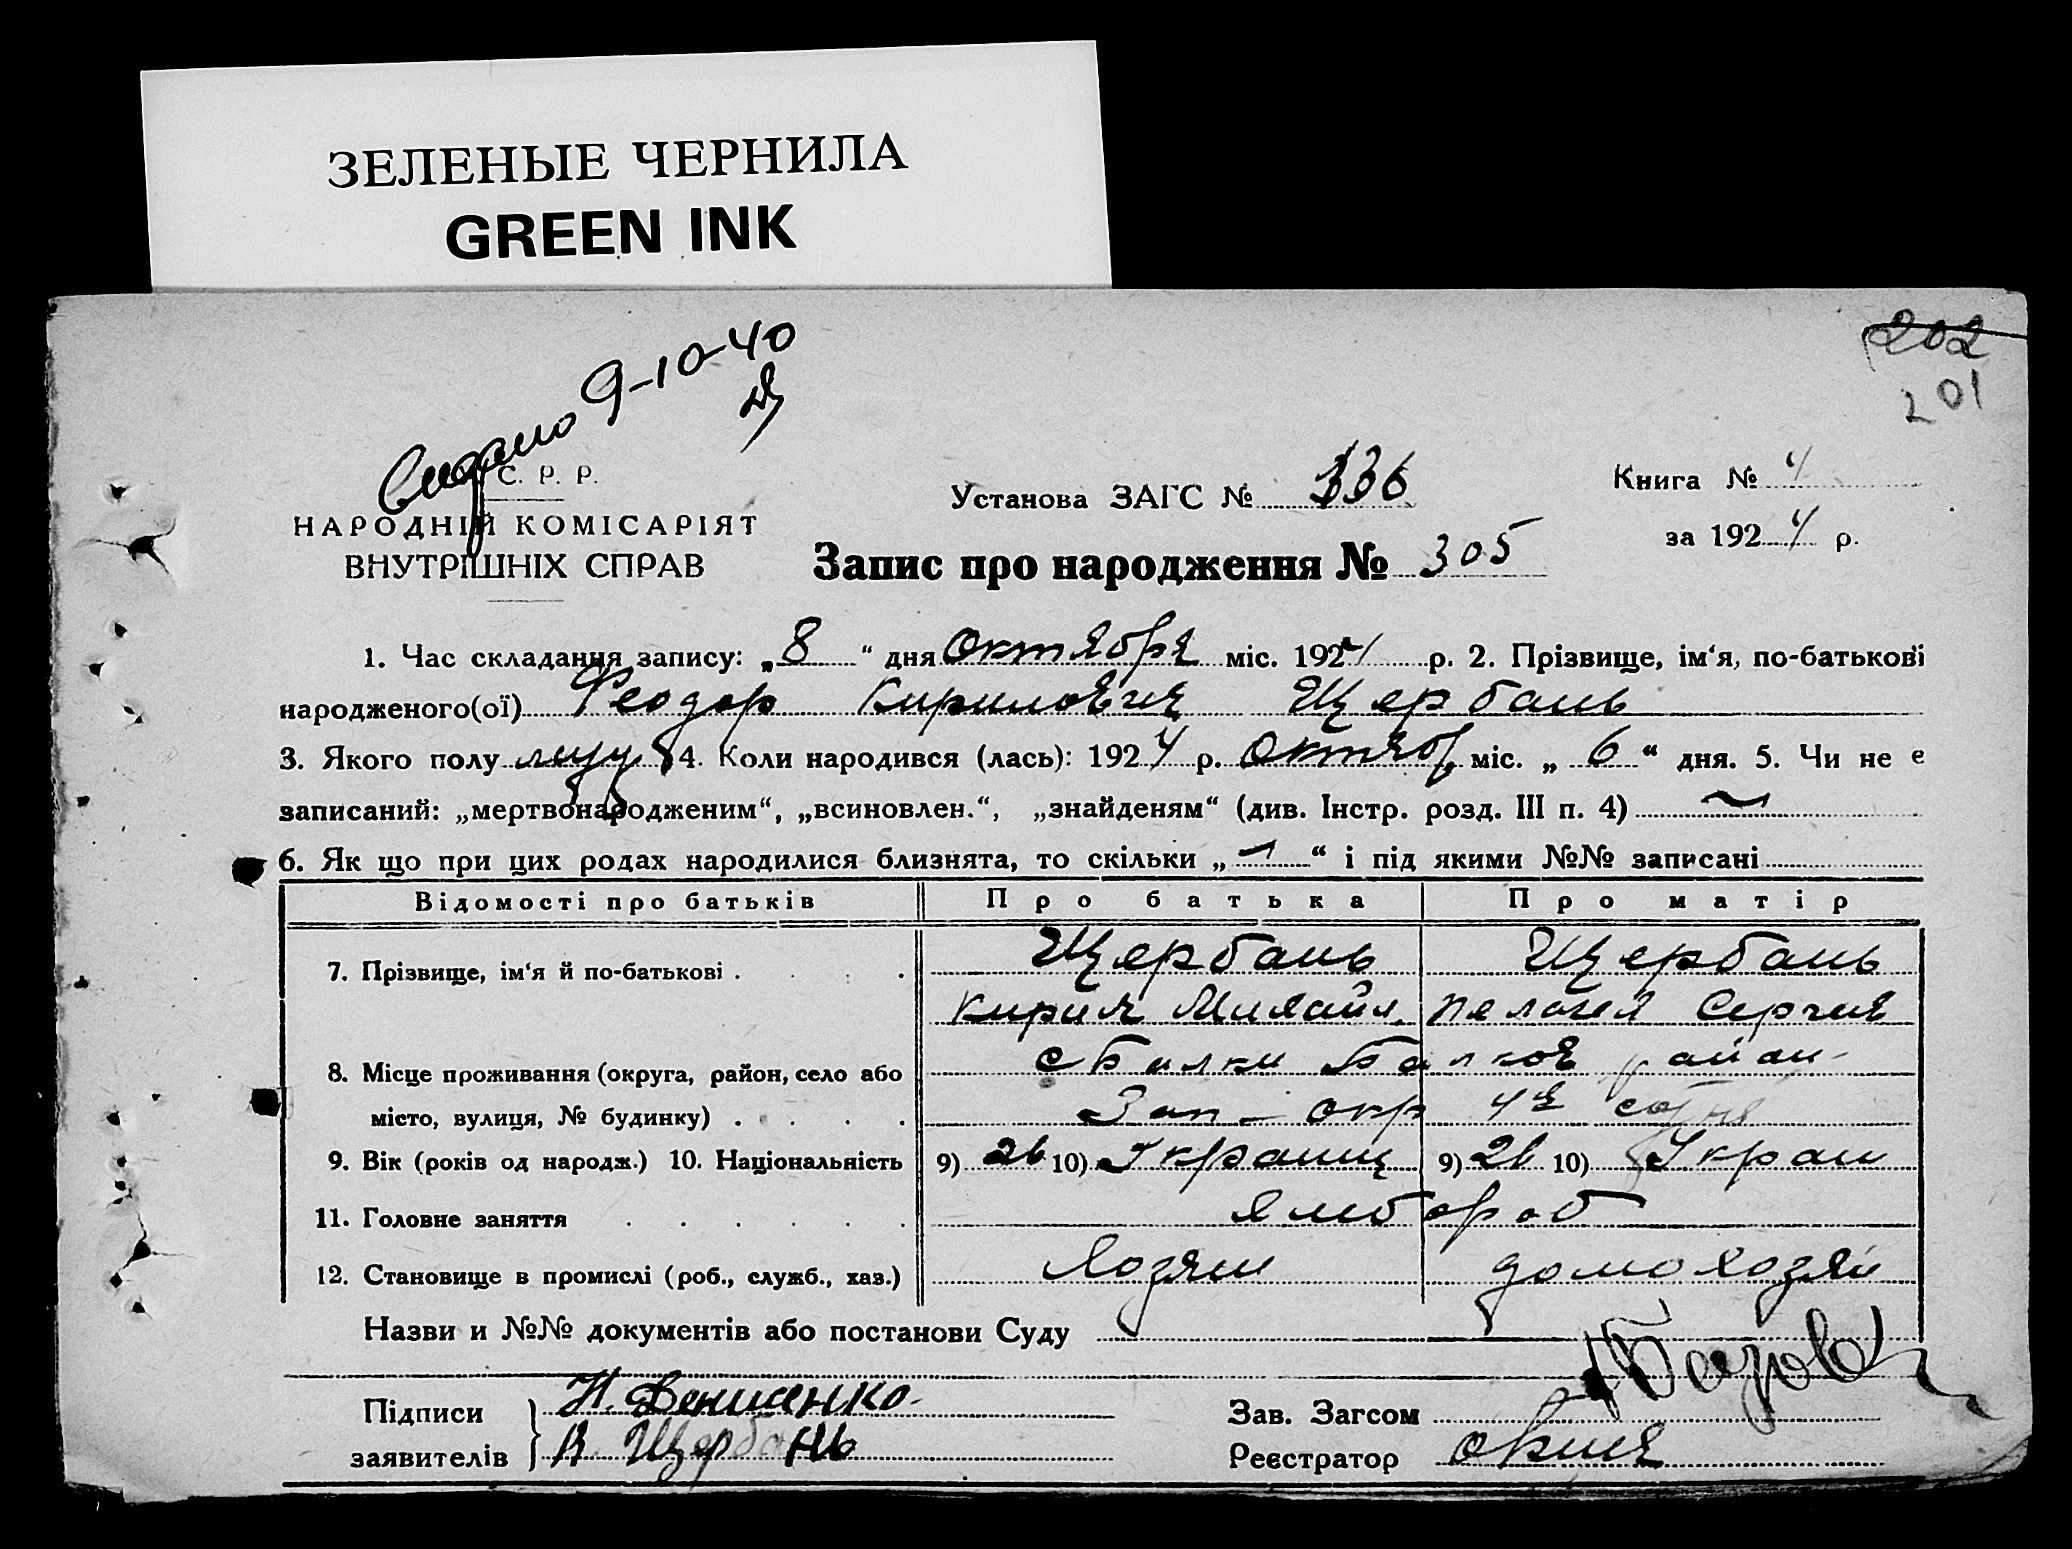 ЗЕЛЕНЫЕ ЧЕРНИЛА
GREEN INK
202
201
Видано 9-10-40
С. Р. Р.
НАРОДНІЙ КОМІСАРІЯТ
ВНУТРІШНІХ СПРАВ
Установа ЗАГС № 336
Книга № 4
за 1924 р.
Запис про народження № 305
1. Час складання запису: „8“ дня Октября міс. 1924 р. 2. Прізвище, ім‘я, по-батькові
народженого(ої) Феодор Кирилович Щербань
3. Якого полу муж 4. Коли народився (лась): 1924 р. Октяб міс. „6“ дня. 5. Чи не є
записаний: „мертвонародженим“, „всиновлен.“, „знайденям“ (див. Інстр. розд. III п. 4)
6. Як що при цих родах народилися близнята, то скільки „—“ і під якими №№ записані
Відомості про батьків Про батька Про матір
7. Прізвище, ім‘я й по-батькові . . . . Щербань Щербань
Кирил Михайл. Пелагея Сергия
8. Місце проживання (округа, район, село або с Балки Балков район
місто, вулиця, № будинку) . . . . Зап – окр 4я сотня
9. Вік (років од народж.) 10. Національність 9) 26 10) Украинц 9) 26 10) Украи
11. Головне заняття . . . . . . хлібороб
12. Становище в промислі (роб., служб., хаз.) Хозяин домохозяй
Назви и №№ документів або постанови Суду
Підписи Н. Денисенко Зав. Загсом
заявителів В. Щербань Реєстратор